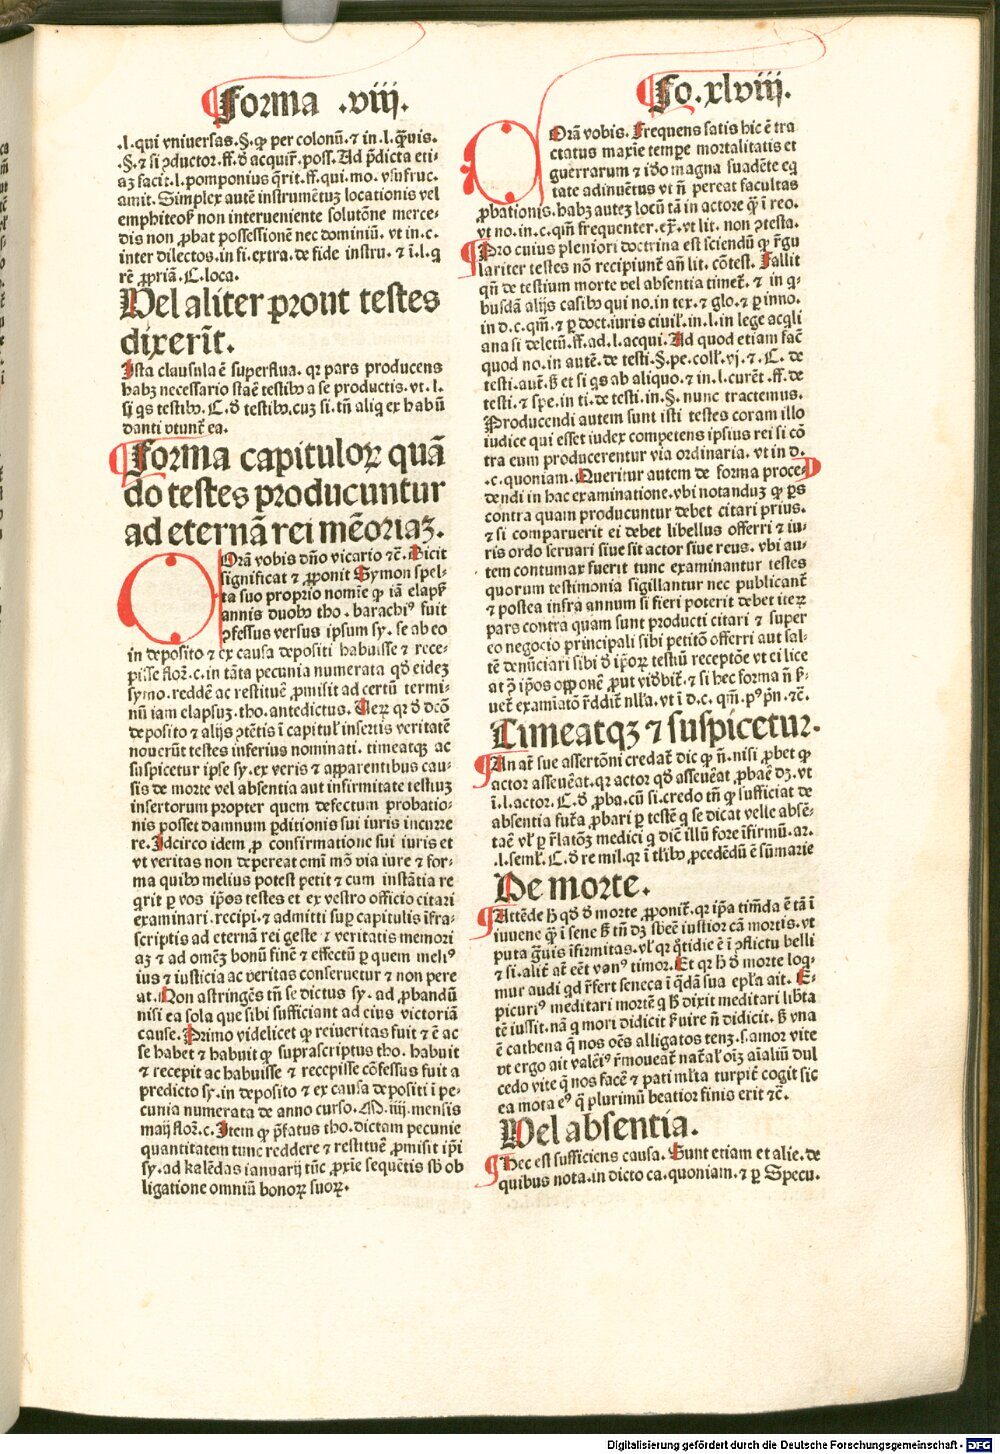 Forma .viij.
.l. qui vniversas. §. ꝙ per colonū. ⁊ in .l. q̄uis.
.§. ⁊ si ↄductor. ff. ð acquir̄. poss. Ad p̄dicta eti-
aꝫ facit .l. pomponius q̄rit. ff. qui. mo. vsufruc.
amit. Simplex autē instrumētuꝫ locationis vel
emphiteoẜ non interueniente solutōne merce-
dis non ꝓbat possessionē nec dominiū. vt in .c.
inter dilectos. in fi. extra. de fide instru. ⁊ ī .l. q
rē ꝓpriā. C. loca.
Vel aliter prout testes
dixerīt.
Ista clausula ē superflua. qꝛ pars producens
habꝫ necessario staē testibꝰ a se productis. vt .l.
si qs testibꝰ. C. ð testibꝰ. cuꝫ si. tn̄ aliq ex habū
danti vtunt̄ ea.
Forma capituloꝝ quā
do testes producuntur
ad eternā rei mēoriaꝫ.
Orā vobis dn̄o vicario ⁊c̄. Dicit
significat ⁊ ꝓponit Symon spel-
ta suo proprio nomīe ꝙ iā elapẜ
annis duobꝰ tho. barachiꝰ fuit
ↄfessus versus ipsum sy. se ab eo
in deposito ⁊ ex causa depositi habuisse ⁊ rece-
pisse flor̄. c. in tāta pecunia numerata qð eideꝫ
symo. reddē ac restituē ꝓmisit ad certū termi-
nū iam elapsuꝫ. tho. antedictus. Itеꝝ qꝛ ð dcō
deposito ⁊ alijs ↄtētis ī capitul̄ insertis veritatē
nouerūt testes inferius nominati. timeatqꝫ ac
suspicetur ipse sy. ex veris ⁊ apparentibus cau-
sis de morte vel absentia aut infirmitate testiuꝫ
insertorum propter quem defectum probatio-
nis posset damnum ꝑditionis sui iuris incurre
re. Idcirco idem ꝓ confirmatione sui iuris et
vt veritas non depereat omī mō via iure ⁊ for-
ma quibꝰ melius potest petit ⁊ cum instātia re
qrit ꝑ vos ip̄os testes et ex vestro officio citari
examinari. recipi. ⁊ admitti suꝑ capitulis īfra-
scriptis ad eternā rei geste ⁊ veritatis memori
aꝫ ⁊ ad omēꝫ bonū finē ⁊ effectū ꝑ quem meliꝰ
ius ⁊ iusticia ac veritas conseruetur ⁊ non pere
at. Non astringēs tn̄ se dictus sy. ad ꝓbandū
nisi ea sola que sibi sufficiant ad eius victoriā
cause. Primo videlicet ꝙ rei veritas fuit ⁊ ē ac
se habet ⁊ habuit ꝙ suprascriptus tho. habuit
⁊ recepit ac habuisse ⁊ recepisse cōfessus fuit a
predicto sy. in deposito ⁊ ex causa depositi ī pe-
cunia numerata de anno curso. M. iiij. mensis
maij flor̄. c. Item ꝙ p̄fatus tho. dictam pecunie
quantitatem tunc reddere ⁊ restituē ꝓmisit ip̄i
sy. ad kalēdas ianuarij tūc ꝓxīe sequētis sb̄ ob
ligatione omniū bonoꝝ suoꝝ.
Fo. xlviij.
Orā vobis. Frequens satis hic ē tra
ctatus maxīe tempe mortalitatis et
guerrarum ⁊ iðo magna suadēte eq
tate adinuētus vt n̄ pereat facultas
ꝓbationis. habꝫ auteꝫ locū tā in actore q̄ ī reo.
vt no. in .c. qm̄ frequenter. ex̄. vt lit. non ↄtesta.
Pro cuius pleniori doctrina est sciendū ꝙ r̄gu
lariter testes nō recipiunt̄ an̄ lit. cōtest. Fallit
qn̄ de testium morte vel absentia timet̄. ⁊ in q-
busdā alijs casibꝰ qui no. in tex. ⁊ glo. ⁊ ꝑ inno.
in d. c. qm̄. ⁊ ꝑ doct. iuris ciuil̄. in .l. in lege acqli
ana si deletū. ff. ad .l. acqui. Ad quod etiam fac̄
quod no. in autē. de testi. §. pe. coll̄. vj. ⁊ C. de
testi. aut̄. ẜ et si qs ab aliquo. ⁊ in .l. curēt. ff. de
testi. ⁊ spe. in ti. de testi. in .§. nunc tractemus.
Producendi autem sunt isti testes coram illo
iudice qui esset iudex competens ipsius rei si cō
tra eum producerentur via ordinaria. vt in d.
.c. quoniam. Queritur autem de forma proce-
dendi in hac examinatione. vbi notanduꝫ ꝙ ꝑs
contra quam producuntur debet citari prius.
⁊ si comparuerit ei debet libellus offerri ⁊ iu-
ris ordo seruari siue sit actor siue reus. vbi au-
tem contumax fuerit tunc examinantur testes
quorum testimonia sigillantur nec publicant̄
⁊ postea infra annum si fieri poterit debet iteꝝ
pars contra quam sunt producti citari ⁊ super
eo negocio principali sibi petitō offerri aut sal-
tē denūciari sibi ð ip̄oꝝ testiū receptōe vt ei lice
at ↄ̄ ip̄os opponē ꝓut vidb̄it̄. ⁊ si hec forma n̄ ẜ-
uet̄ examiatō r̄ddit̄ nll̄a. vt ī d. c. qm̄. pꝰ pn̄. ⁊c̄.
Timeatqꝫ ⁊ suspicetur.
An at̄ sue assertōni credat̄ dic ꝙ n̄. nisi ꝓbet ꝙ
actor asseuēat. qꝛ actor qð asseuēat ꝓbaē dꝫ. vt
ī .l. actor. C. ð ꝓba. cū si. credo tn̄ ꝙ sufficiat de
absentia fut̄a ꝓbari ꝑ testē q se dicat velle absē-
taē vl̄ ꝑ r̄latōꝫ medici q dic̄ illū fore īfirmū. ar.
.l. seml̄. C. ð re mil. qꝛ ī tl̄ibꝰ ꝓcedēdū ē sūmarie
De morte.
Attēde ꝙ qð ð morte ꝓponit̄. qꝛ ip̄a timēda ē tā ī
iuuene q̄ ī sene ẜ tn̄ dꝫ sbēē iustior cā mortis. vt
puta ḡuis īfirmitas. vl̄ qꝛ q̄tidie ē ī ↄflictu belli
⁊ si. alit̄ at̄ eēt vanꝰ timor. Et qꝛ ꝙ ð morte loq-
mur audi qd r̄fert seneca ī q̄dā sua epl̄a ait. E-
picuriꝰ meditari mortē q ꝙ dixit meditari libta
tē iussit. nā q mori didicit ẜuire n̄ didicit. ẜ vna
ē cathena q̄ nos oēs alligatos tenꝫ .s. amor vite
vt ergo ait valēiꝰ r̄moueat̄ nat̄al̄ oīꝫ aīaliū dul
cedo vite q̄ nos facē ⁊ pati ml̄ta turpit̄ cogit sic
ea mota eꝰ q̄ plurimū beatior finis erit ⁊c̄.
Vel absentia.
Hec est sufficiens causa. Sunt etiam et alie. de
quibus nota. in dicto ca. quoniam. ⁊ ꝑ Specu.
Digitalisierung gefördert durch die Deutsche Forschungsgemeinschaft - DFG